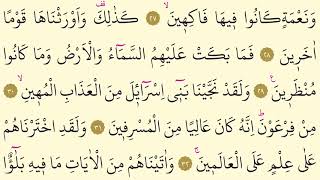 وَنَعْمَةٍ كَانُوا فِيهَا فَاكِهٖينَۙ ﴿٢٧﴾ كَذٰلِكَ۠ وَاَوْرَثْنَاهَا قَوْمًا
اٰخَرٖينَ ﴿٢٨﴾ فَمَا بَكَتْ عَلَيْهِمُ السَّمَٓاءُ وَالْاَرْضُ وَمَا كَانُوا
مُنْظَرٖينَ۟ ﴿٢٩﴾ وَلَقَدْ نَجَّيْنَا بَنٖٓي اِسْرَٓائٖلَ مِنَ الْعَذَابِ الْمُهٖينِۙ ﴿٣٠﴾
مِنْ فِرْعَوْنَؕ اِنَّهُ كَانَ عَالِيًا مِنَ الْمُسْرِفٖينَ ﴿٣١﴾ وَلَقَدِ اخْتَرْنَاهُمْ
عَلٰى عِلْمٍ عَلَى الْعَالَمٖينَۚ ﴿٣٢﴾ وَاٰتَيْنَاهُمْ مِنَ الْاٰيَاتِ مَا فٖيهِ بَلٰٓؤٌ۬ا